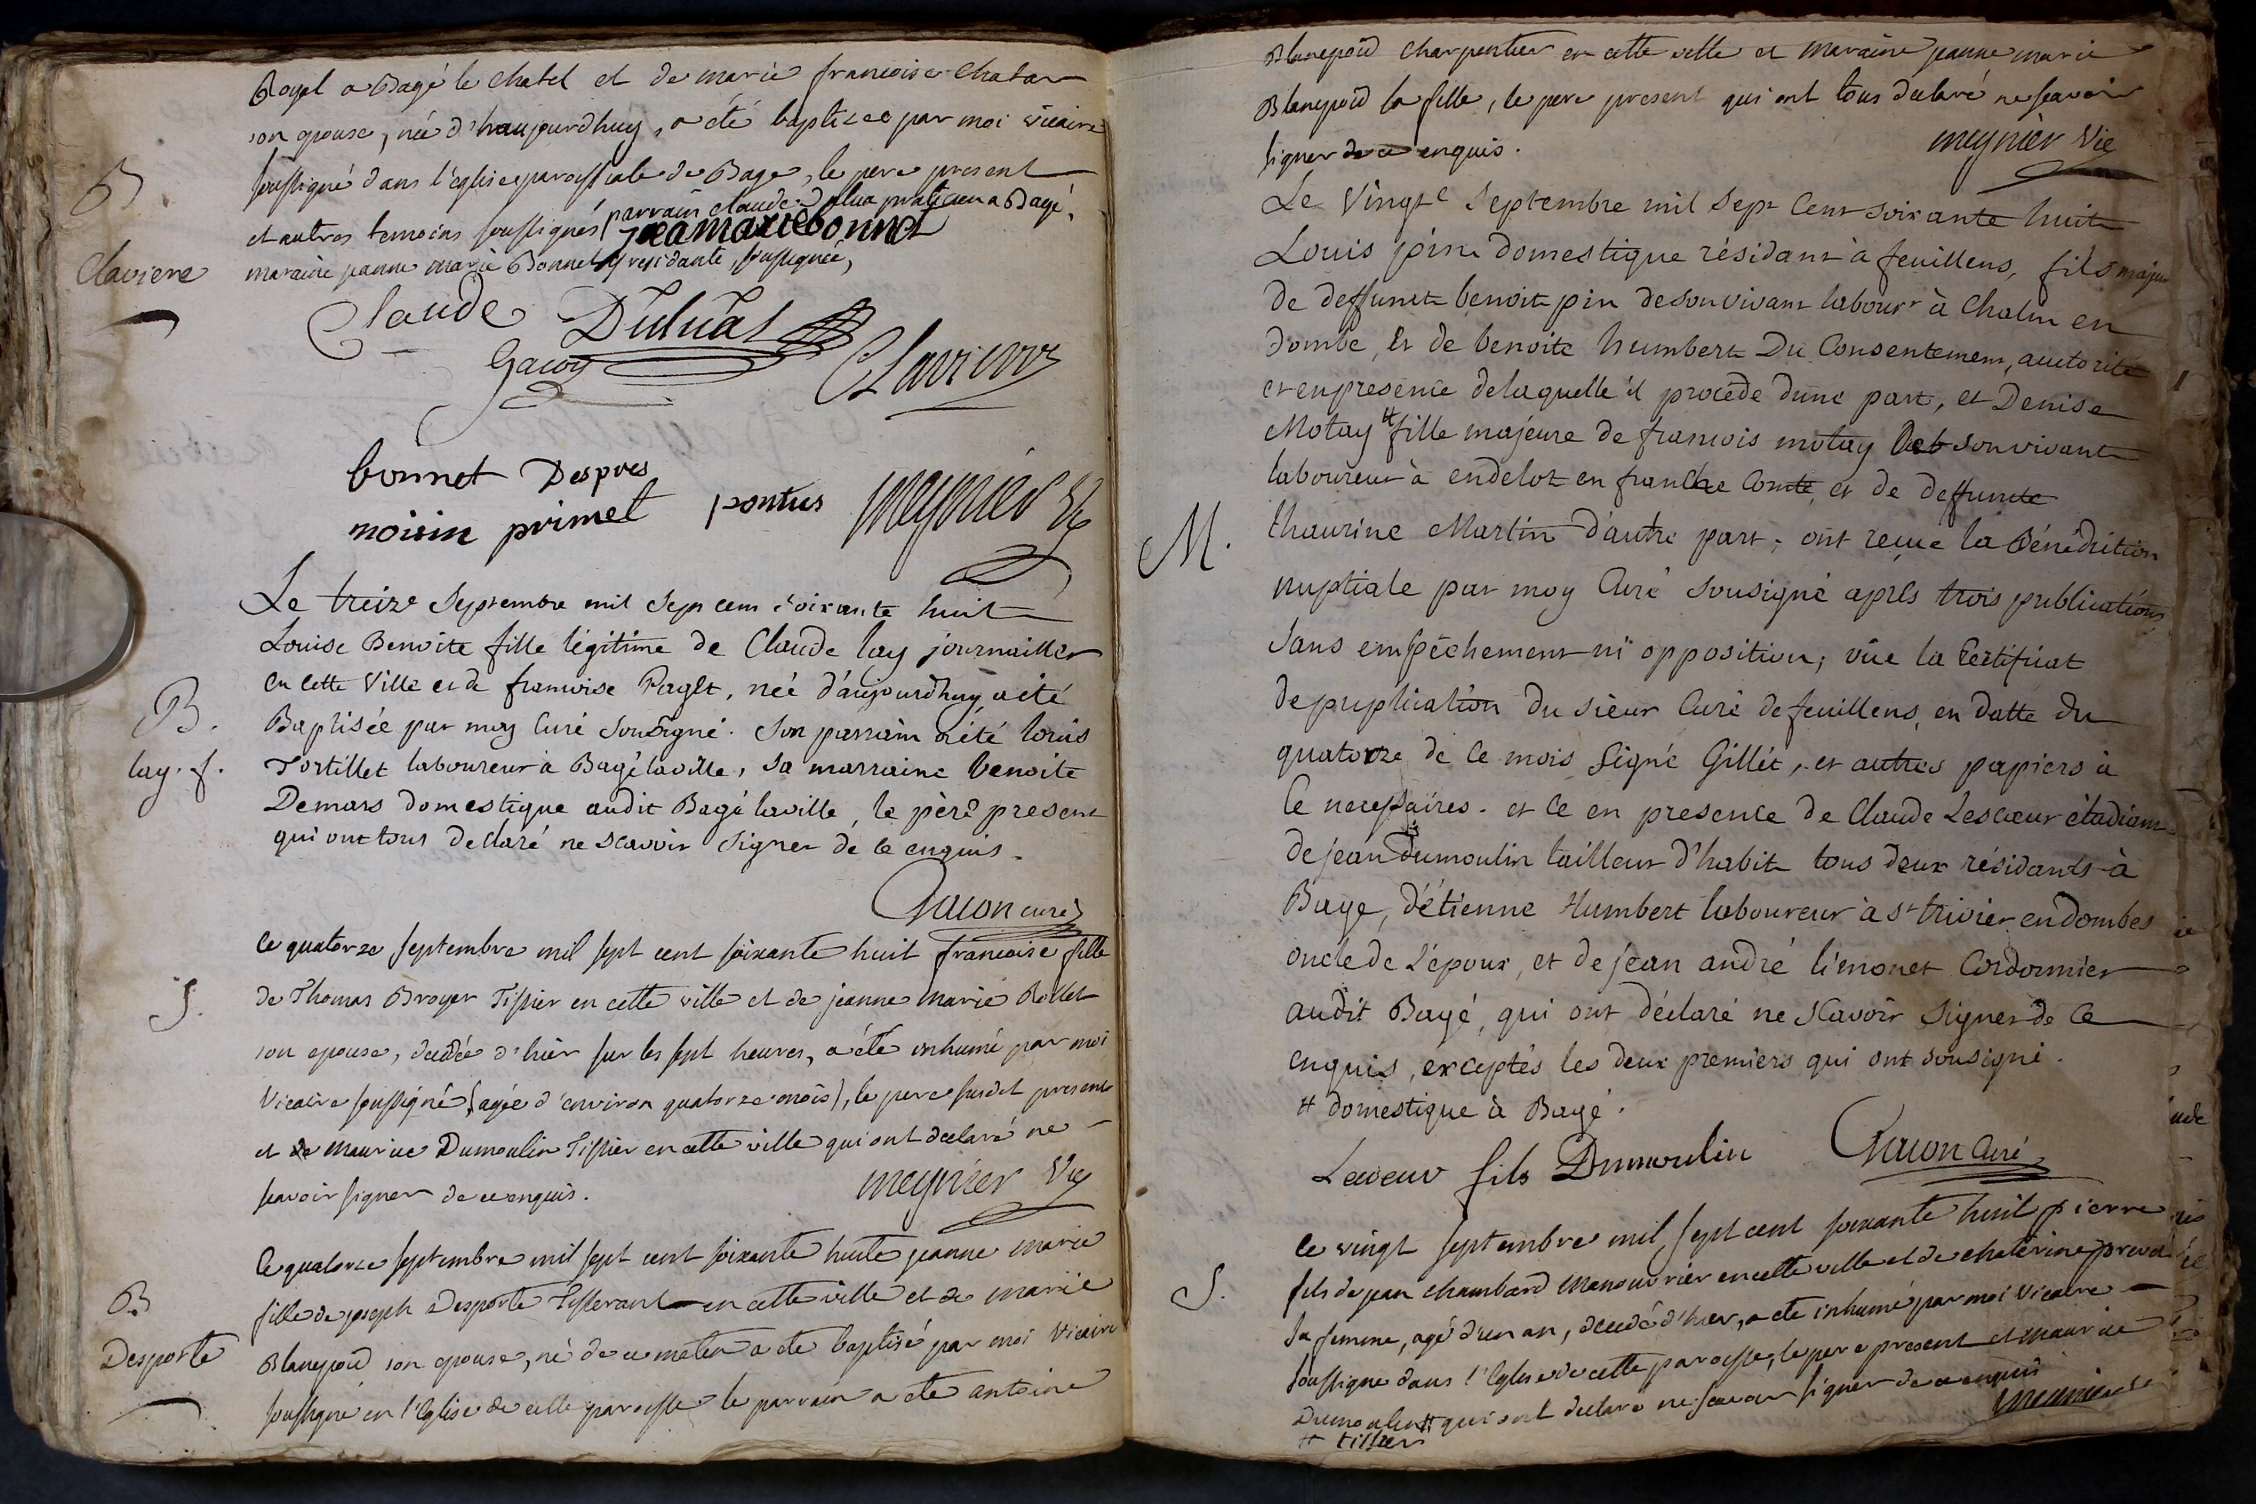 Royal a Bagé le chatel et de marie francoise Chatar
son epouse, née d'haujourdhuy, a été baptisée par moi vicaire
soussigné dans l'eglise paroissiale de Bage, le pere present
et autres temoins soussignés parrain claude praticien a Bagé,
jeamariebonnet
maraine jeanne marie Bonnet residante, soussignée,
B
Claviere
Claude Duluat
Gacon Claviere
bonnet Despres
noisin primet pontus meynier Vic
Le treize Septembre mil sept cent soixante huit
Louise Benoite fille légitime de Claude lay journailler
en cette Ville et de francoise Paget, née d'aujourdhuy a été
B.
Baptisée par moy Curé Sousigné. Son parrain a été louis
lay. f.
Tortillet laboureur à Bagé laville, sa marraine benoite
Demars domestique audit Bagé laville, le père present
qui ont tous declaré ne scavoir signer de ce enquis.
Gacon curé
Ce quatorze septembre mil sept cent soixante huit francoise fille
S.
de Thomas Broyer Tissier en cette ville et de jeanne marie Rollet
son epouse, decedée d'hier sur les sept heures, a été inhumé par moi
Vicaire soussigné (agée d'environ quatorze mois), le pere susdit present
et de maurice Dumoulin Tissier en cette ville qui ont declaré ne
scavoir signer de ce enquis. meynier Vic
Ce quatorze septembre mil sept cent soixante huite jeanne marie
B.
fille de joseph Desporte Tisserant en cette ville et de marie
Desporte
Blanepoid son epouse, né de ce matin a ete baptisé par moi Vicaire
soussigné en l'Eglise de cette paroisse le parrain a ete antoine
Blanepoid Charpentier en cette ville et maraine jeanne marie
Blanepoid la fille, le pere present qui ont tous declaré ne scavoir
signer de ce enquis.
meynier Vic
Le Vingt Septembre mil Sept Cent soixante huit
Louis pin domestique résidant à feuillens, fils majeur
de deffunct benoit pin de son vivant labour^r à Chalin en
dombe, et de benoite humbert Du Consentement, auctorité
et en presence de laquelle il procéde dune part, et Denise
Motay # fille majeure de francois motay de son vivant
laboureur à endelot en franche Comté, et de deffuncte
M.
thaurine Martin d'autre part, ont reçue la Bénédiction
nuptiale par moy Curé Sousigné aprés trois publications
Sans empêchement ni opposition, vüe la Certificat
de publication du sieur Curé de feuillens, en datte du
quatorze de ce mois signé Gillét, et autres papiers à
Ce necessaires. et ce en presence de Claude Lescœur étudiant
de jean dumoulin tailleur d'habit tous deux résidants à
Bage, d'étienne Humbert laboureur à s^t trivier en dombes
oncle de L'époux, et de jean andré limonet Cordonnier
audit Bagé, qui ont déclaré ne scavoir Signer de Ce
enquis, exceptés les deux premiers qui ont sousigné.
# domestique à Bagé.
Lecoeur fils Dumoulin Gacon Curé
Ce vingt septembre mil sept cent soixante huit pierre
S.
fils de jean chambard manouvrier en cette ville et de chaterine prevat
sa femme, agé d'un an, decedé d'hier, a ete inhumé par moi Vicaire
soussigne dans l'Eglise de cette paroisse, le pere present et maurice
Dumoulin # qui ont declaré ne scavoir signer de ce enquis
# tissier meynier Vic